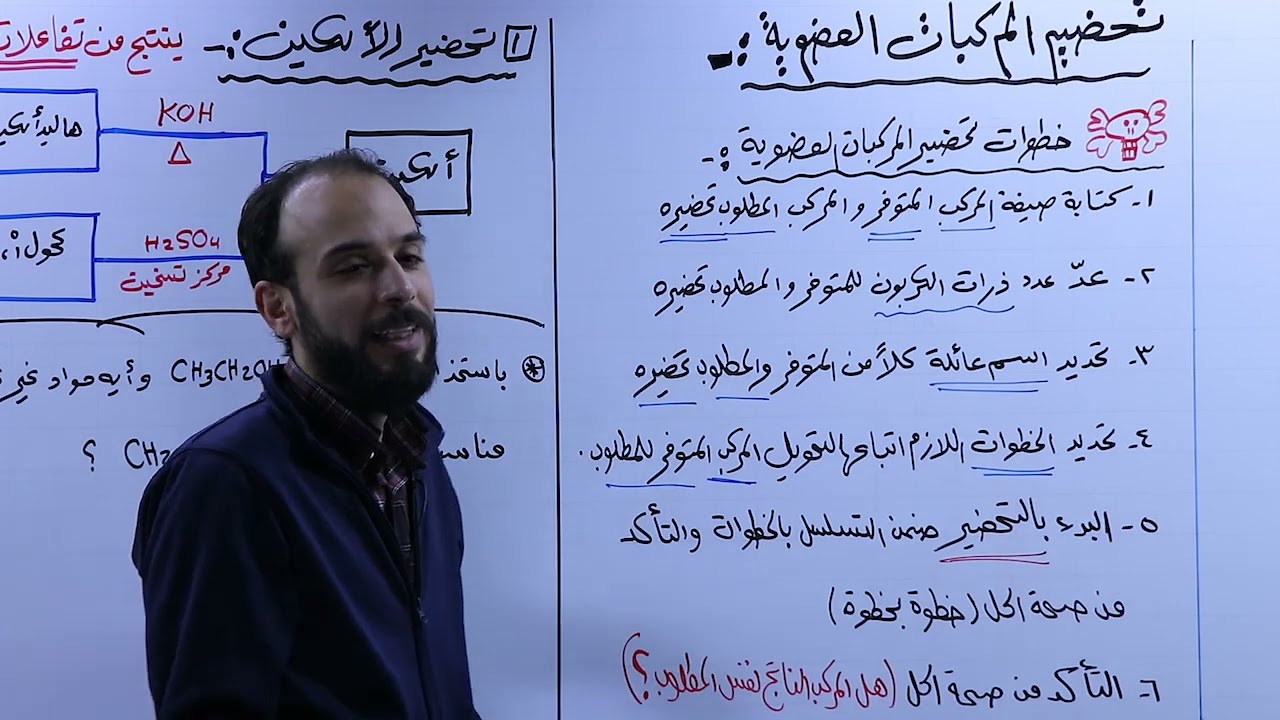 تحضير المركبات العضوية :-
خطوات تحضير المركبات العضوية :-
١- كتابة صيغة المركب المتوفر و المركب المطلوب تحضيره
٢- عدّ عدد ذرات الكربون للمتوفر و المطلوب تحضيره
٣- تحديد اسم عائلة كلاً من المتوفر والمطلوب تحضيره
٤- تحديد الخطوات اللازم اتباعها لتحويل المركب المتوفر للمطلوب .
٥- البدء بالتحضير ضمن التسلسل بالخطوات والتأكد
من صحة الحل (خطوة بخطوة)
٦- التأكد من صحة الحل (هل المركب الناتج نفس المطلوب ؟)
١ تحضير الألكين :- ينتج من تفاعلات
KOH
Δ
H2SO4
مركز تسخين
كحول
CH3CH2OH وأية مواد غير
CH3 ؟